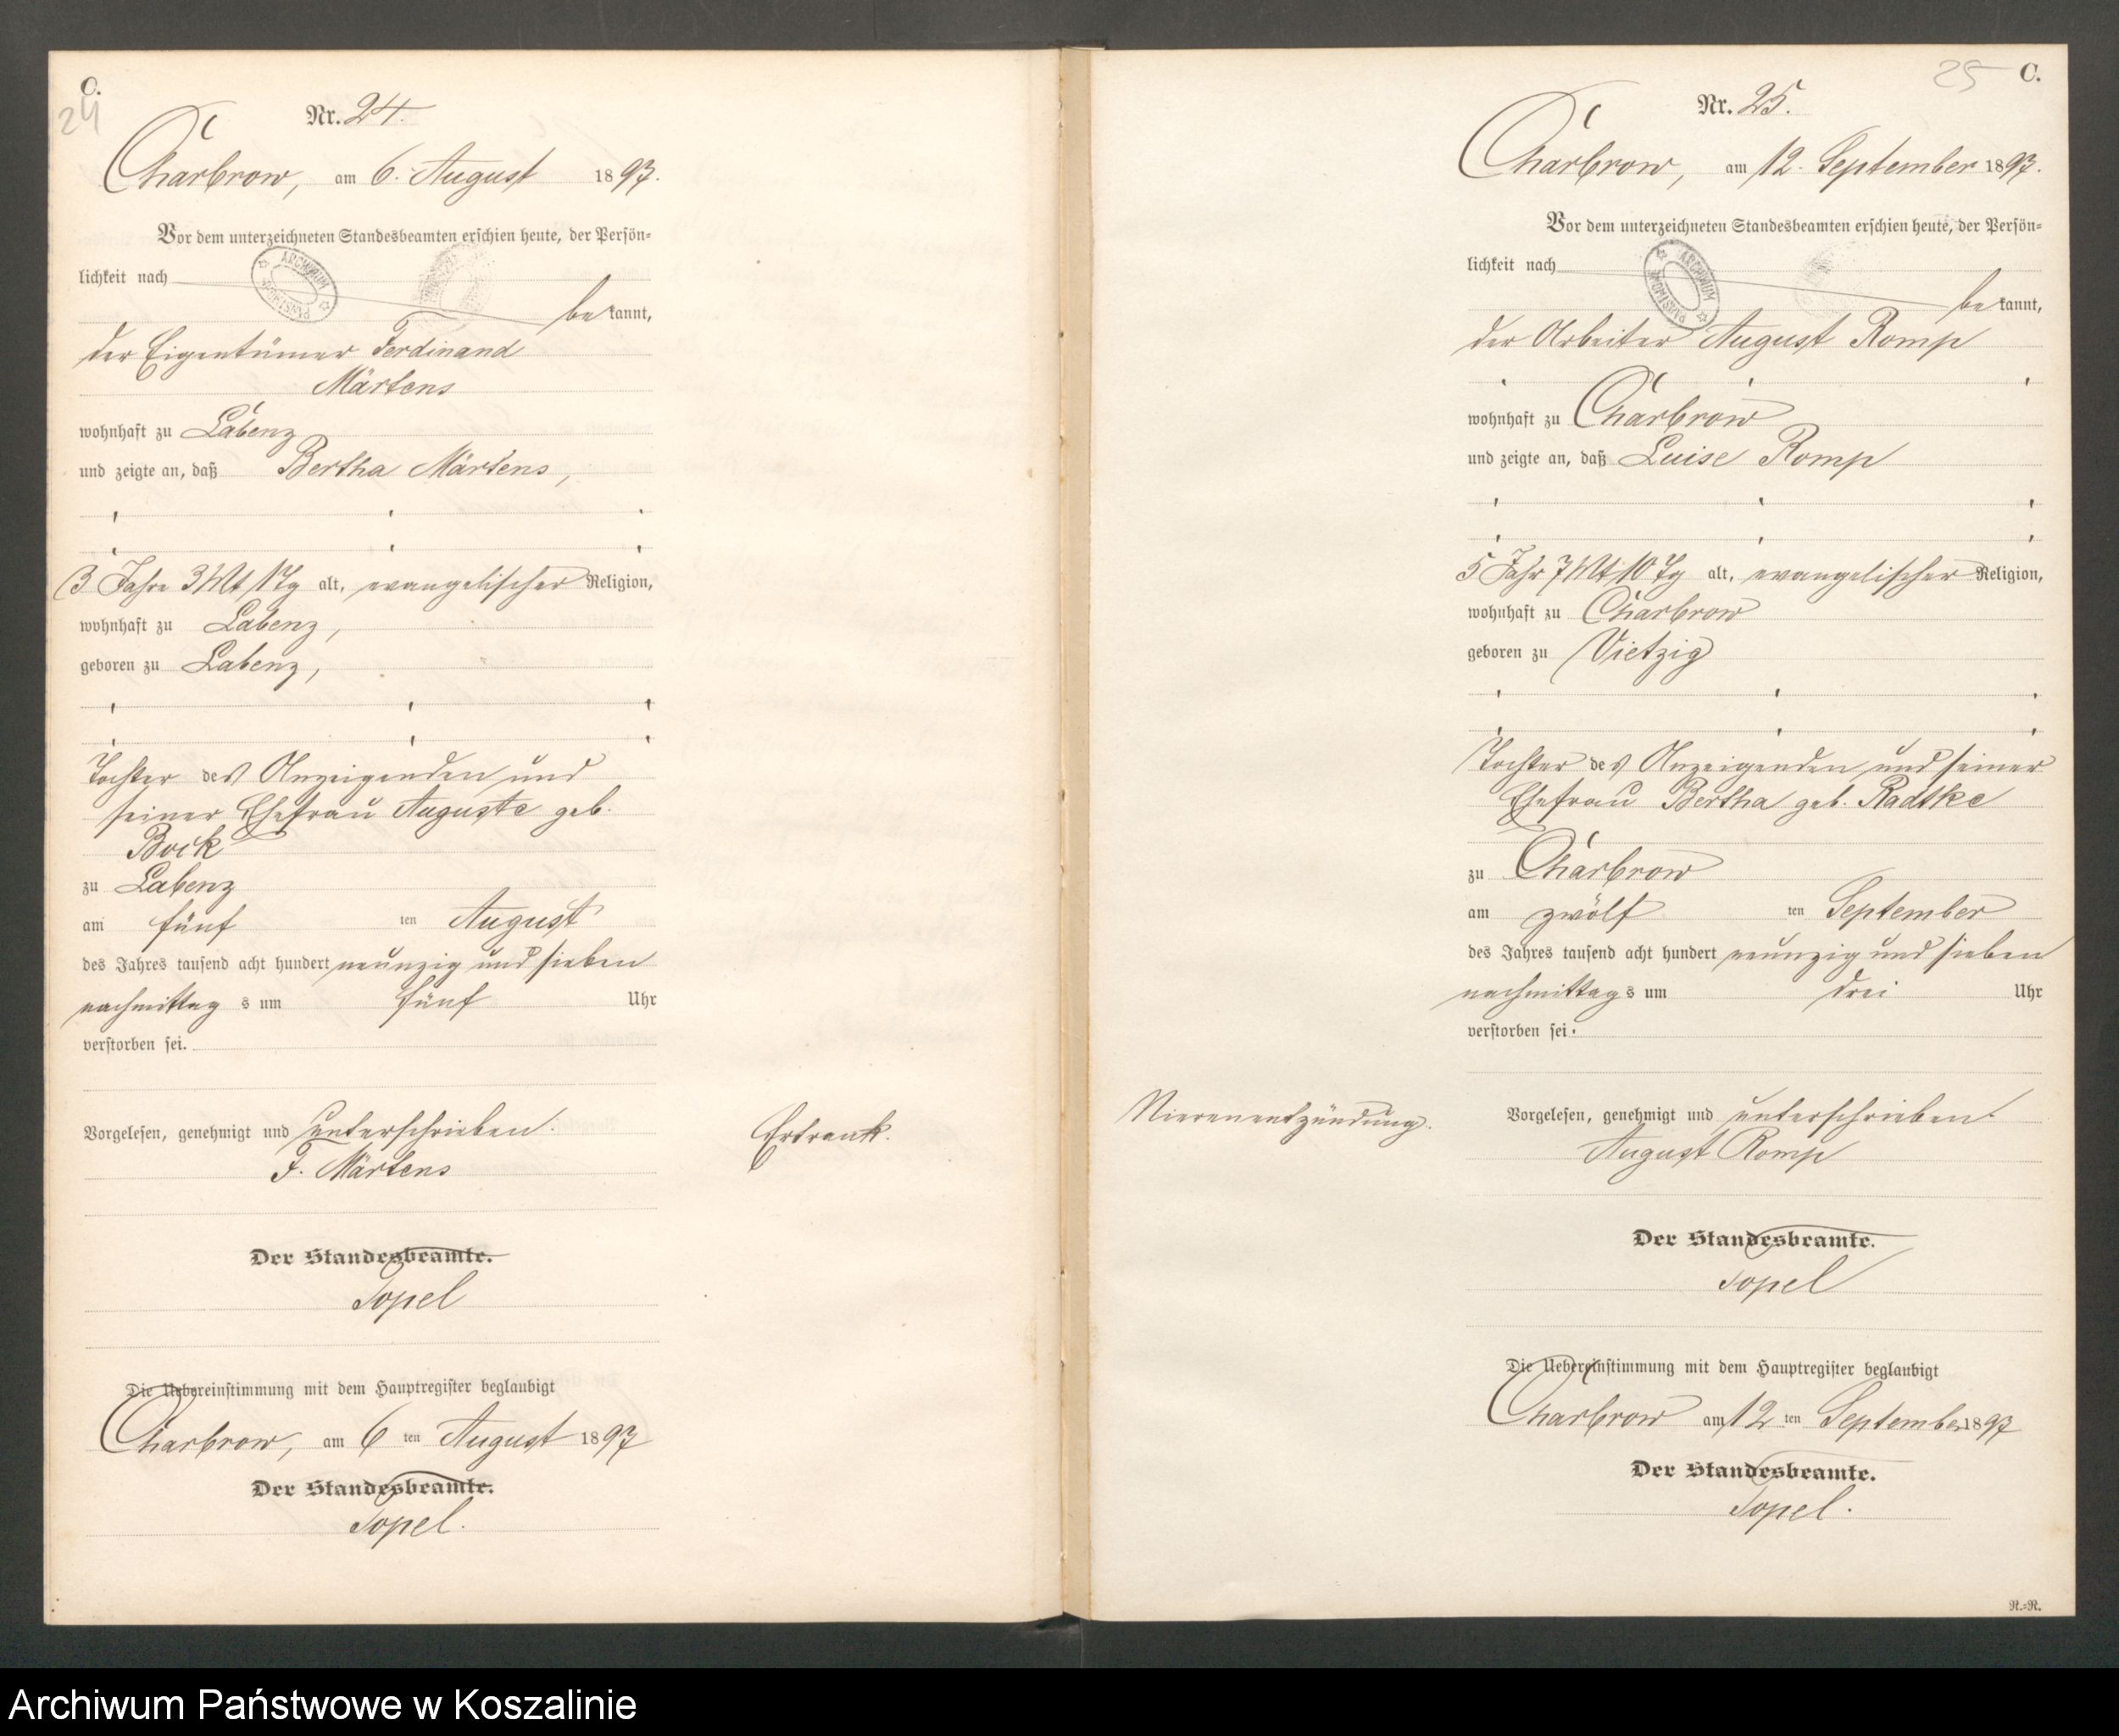 C.
24
Nr. 24.
Charbrow, am 6. August 1897.
Vor dem unterzeichneten Standesbeamten erschien heute, der Persön=
lichkeit nach
be kannt,
der Eigentümer Ferdinand
Märtens
wohnhaft zu Labenz
und zeigte an, daß Bertha Märtens,
3 Jahre 3 Mt 1 Tg alt, evangelischer Religion,
wohnhaft zu Labenz,
geboren zu Labenz,
Tochter des Anzeigenden und
seiner Ehefrau Auguste geb.
Bock
zu Labenz
am fünf ten August
des Jahres tausend acht hundert neunzig und sieben
nachmittag s um fünf Uhr
verstorben sei.
Vorgelesen, genehmigt und unterschrieben.
F. Märtens
Ertrank.
Der Standesbeamte.
Topel
Die Uebereinstimmung mit dem Hauptregister beglaubigt
Charbrow, am 6 ten August 1897
Der Standesbeamte.
Topel.
25 C.
Nr. 25.
Charbrow, am 12. September 1897.
Vor dem unterzeichneten Standesbeamten erschien heute, der Persön=
lichkeit nach
ARCHIWUM PAŃSTWOWE
be kannt,
der Arbeiter August Romp
wohnhaft zu Charbrow
und zeigte an, daß Luise Romp
5 Jahr 7 Mt 10 Tg alt, evangelischer Religion,
wohnhaft zu Charbrow
geboren zu Vietzig
Tochter des Anzeigenden und seiner
Ehefrau Bertha geb. Radtke
zu Charbrow
am zwölf ten September
des Jahres tausend acht hundert neunzig und sieben
nachmittag s um drei Uhr
verstorben sei.
Nierenentzündung.
Vorgelesen, genehmigt und unterschrieben.
August Romp
Der Standesbeamte.
Topel
Die Uebereinstimmung mit dem Hauptregister beglaubigt
Charbrow am 12 ten September 1897
Der Standesbeamte.
Topel.
R.=R.
Archiwum Państwowe w Koszalinie